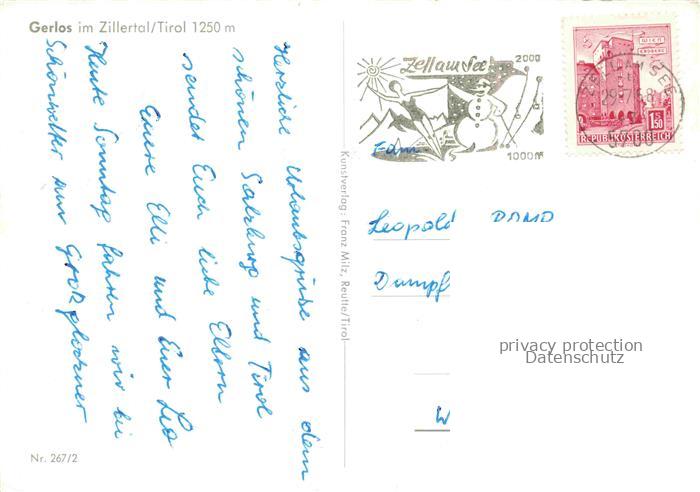 Gerlos im Zillertal/Tirol 1250 m
Herzliche Urlaubsgrüße aus dem
schönen Salzburg und Tirol
sendet Euch liebe Eltern
Euere Elli und Euer Leo
Heute Sonntag fahren wir bei
Schönwetter zum Großglockner
Nr. 267/2
Kunstverlag: Franz Milz, Reutte/Tirol
Zell am See
2000
1000m
WIEN
ERDBERG
ZELL AM SEE
1.50
REPUBLIK ÖSTERREICH
Fam
Leopold
Dampf
W
privacy protection
Datenschutz